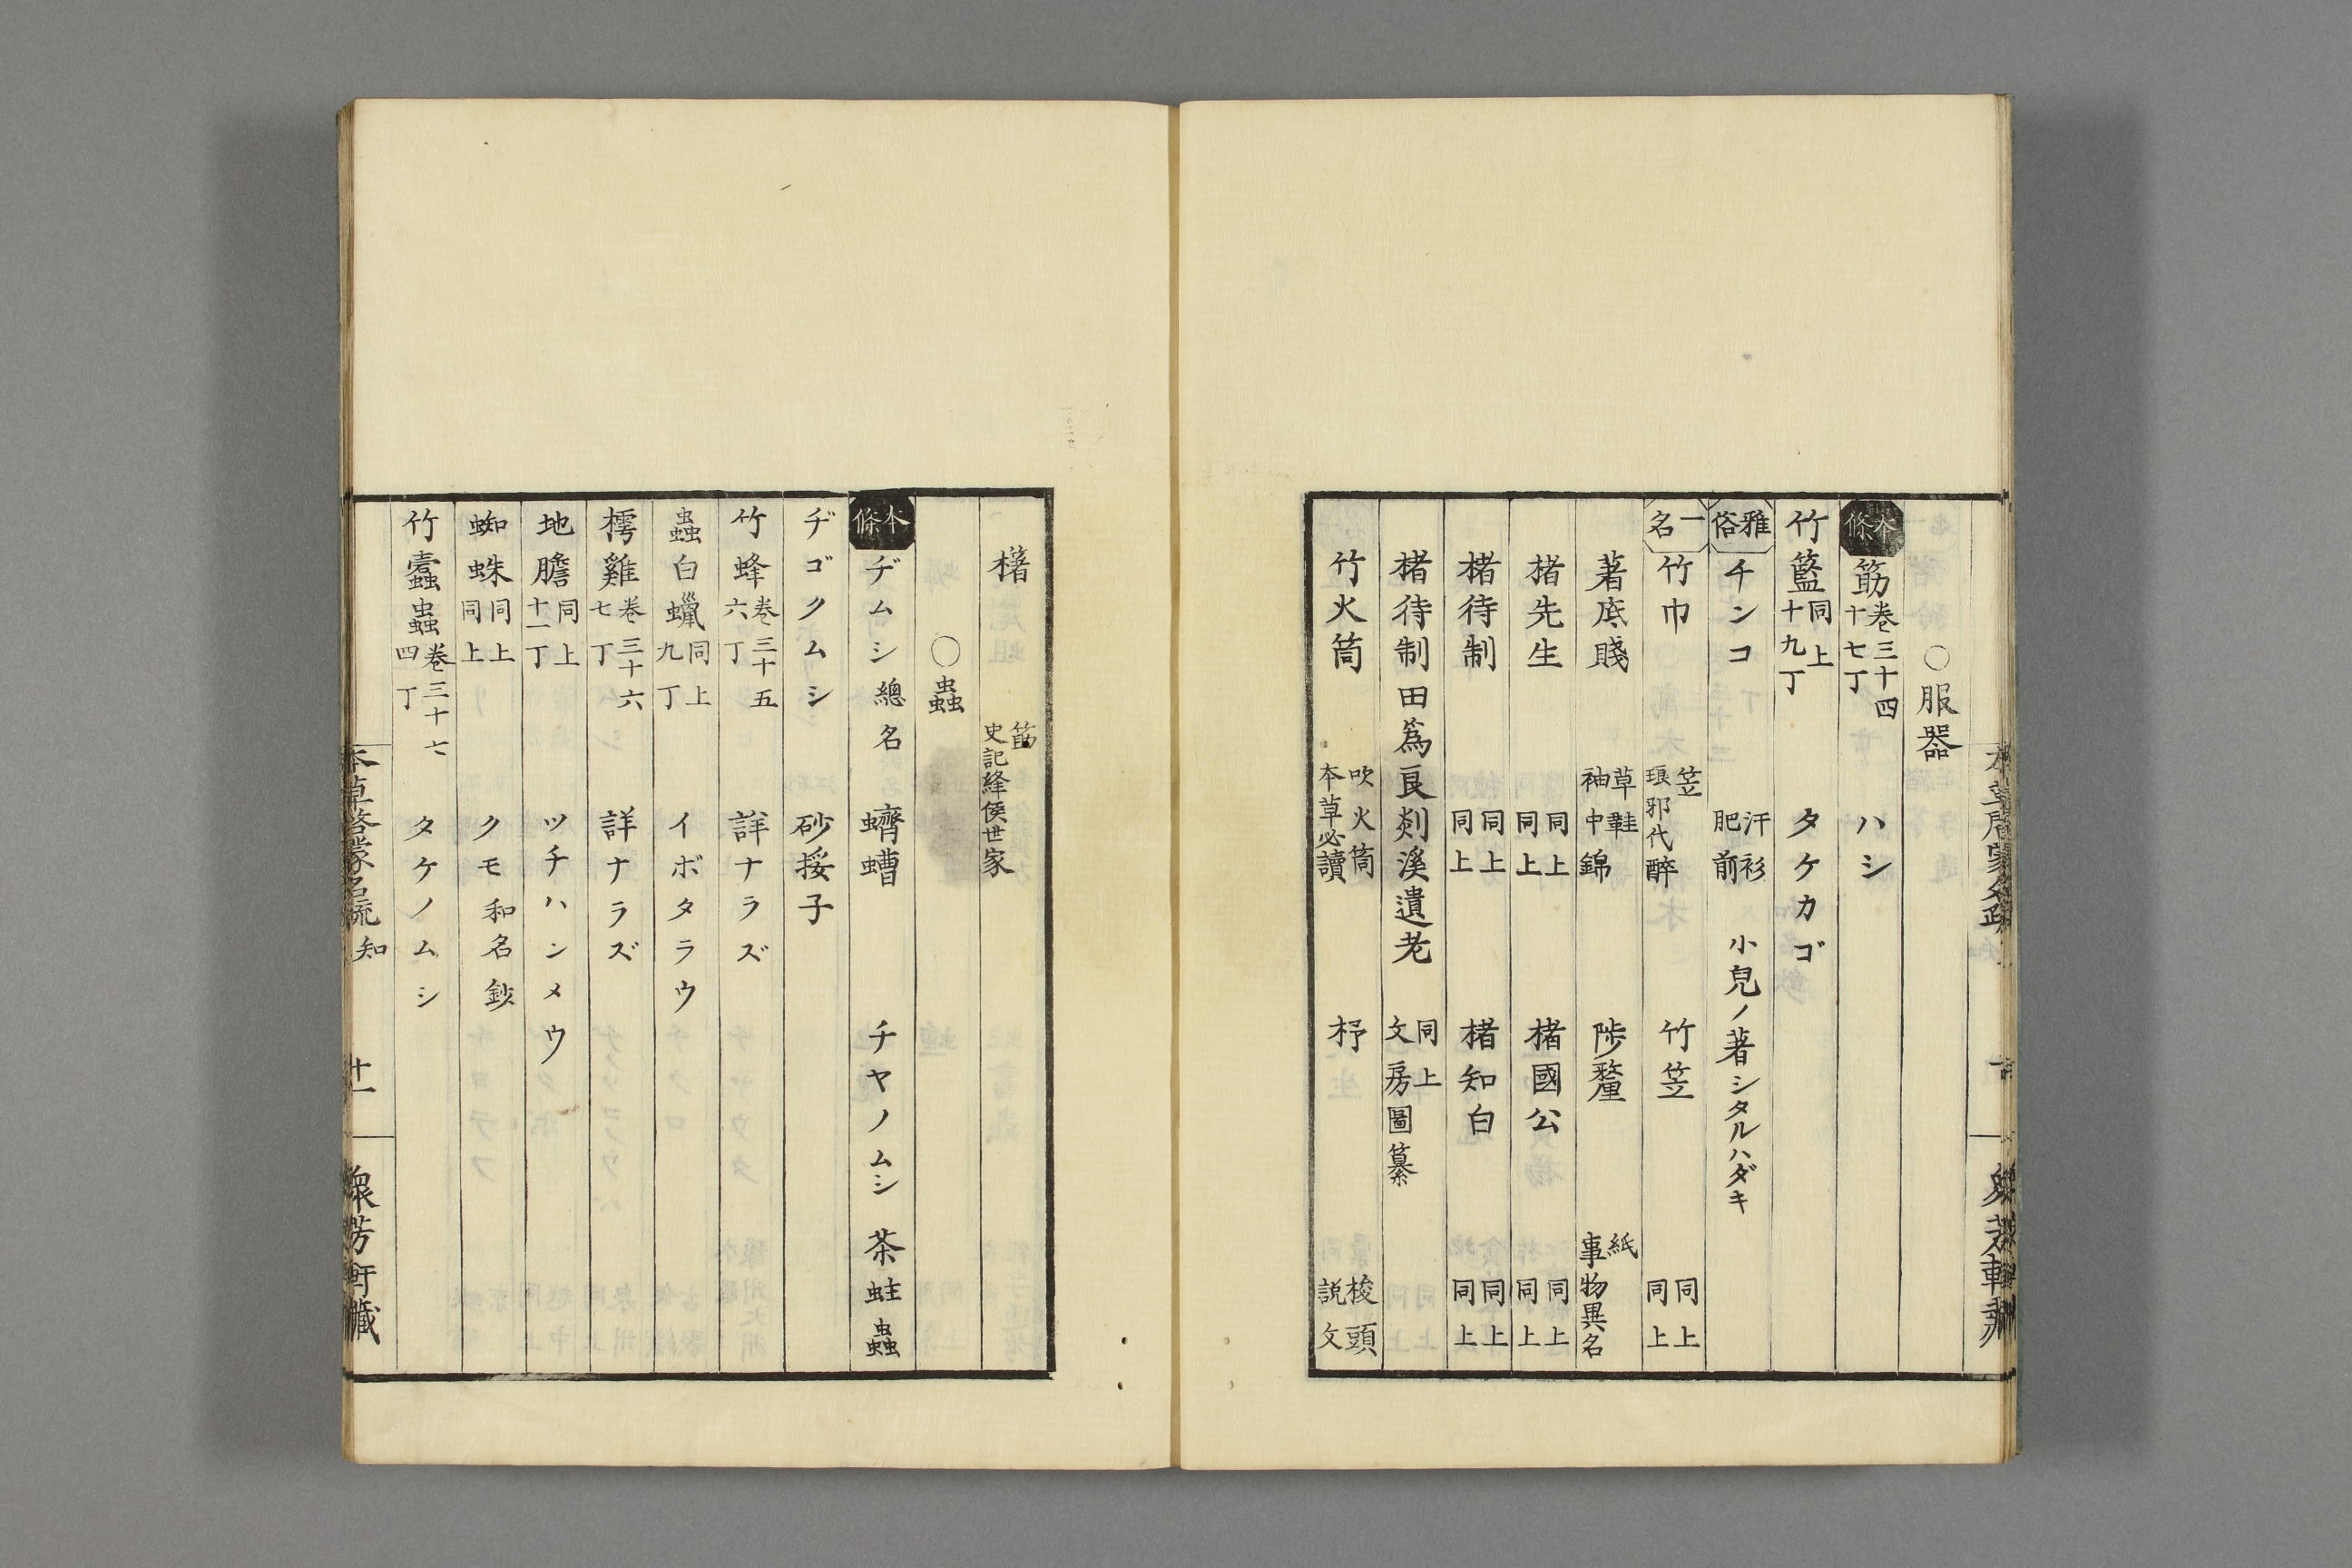 ○服器
本條 筯 卷三十四 十七丁 ハシ
竹籃 同上 十九丁 タケカゴ
雅俗 チンコ 汗衫 肥前 小兒ノ著シタルハダキ
一名 竹巾 笠 琅邪代醉 竹笠 同上 同上
著底賤 草鞋 袖中錦 陟釐 紙 事物異名
楮先生 同上 同上 楮國公 同上 同上
楮待制 同上 同上 楮知白 同上 同上
楮待制田爲良剡溪遺老 同上 文房圖纂
竹火筒 吹火筒 本草必讀 杼 梭頭 説文
櫡 筯 史記絳侯世家
○蟲
本條 ヂムシ 總名 蠐螬 チヤノムシ 茶蛀蟲
ヂゴクムシ 砂挼子
竹蜂 卷三十五 六丁 詳ナラズ
蟲白蠟 同上 九丁 イボタラウ
樗雞 卷三十六 七丁 詳ナラズ
地膽 同上 十一丁 ツチハンメウ
蜘蛛 同上 同上 クモ 和名鈔
竹蠹蟲 卷三十七 四丁 タケノムシ
本草啓蒙名疏 知 廿一 衆芳軒藏